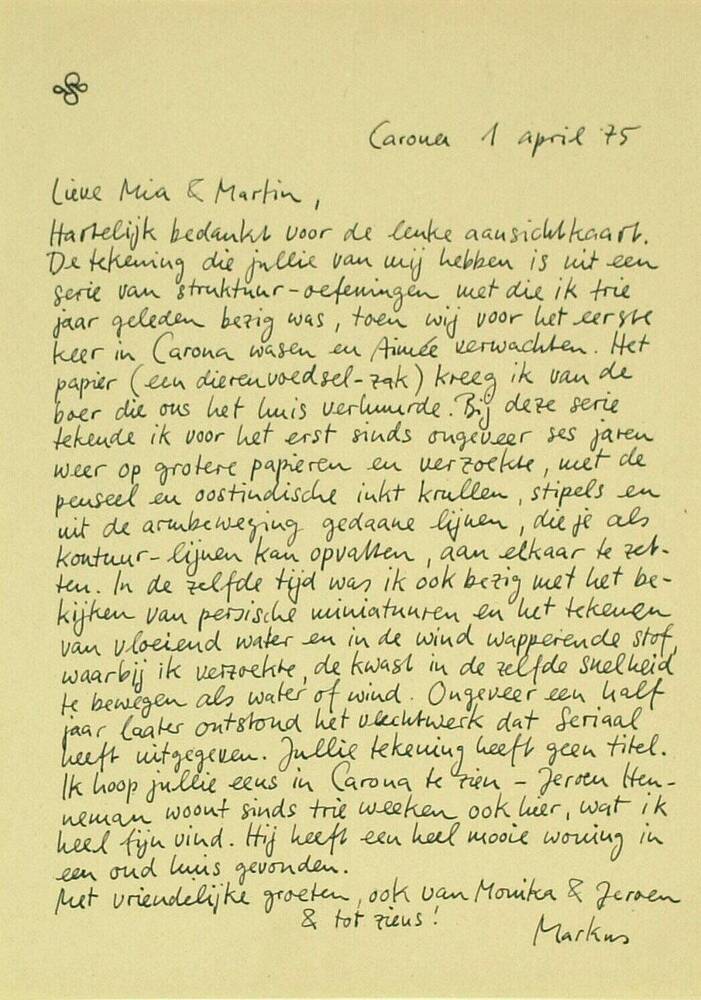 Carona 1 april 75
Lieve Mia & Martin,
Hartelijk bedankt voor de leuke aansichtkaart.
De tekening die jullie van mij hebben is uit een
serie van struktuur-oefeningen met die ik trie
jaar geleden bezig was, toen wij voor het eerste
keer in Carona wasen en Aimée verwachten. Het
papier (een dierenvoedsel-zak) kreeg ik van de
boer die ons het huis verhuurde. Bij deze serie
tekende ik voor het erst sinds ongeveer ses jaren
weer op grotere papieren en verzoekte, met de
penseel en oostindische inkt krullen, stipels en
uit de armbeweging gedaane lijnen, die je als
kontuur-lijnen kan opvatten, aan elkaar te zet-
ten. In de zelfde tijd was ik ook bezig met het be-
kijken van persische miniatuuren en het tekenen
van vloeiend water en in de wind wapperende stof,
waarbij ik verzoekte, de kwast in de zelfde snelheid
te bewegen als water of wind. Ongeveer een half
jaar laater ontstond het vlechtwerk dat Seriaal
heeft uitgegeven. Jullie tekening heeft geen titel.
Ik hoop jullie eens in Carona te zien - Jeroen Hen-
neman woont sinds trie weeken ook hier, wat ik
heel fijn vind. Hij heeft een heel mooie woning in
een oud huis gevonden.
Met vriendelijke groeten, ook van Monika & Jeroen
& tot ziens!
Markus